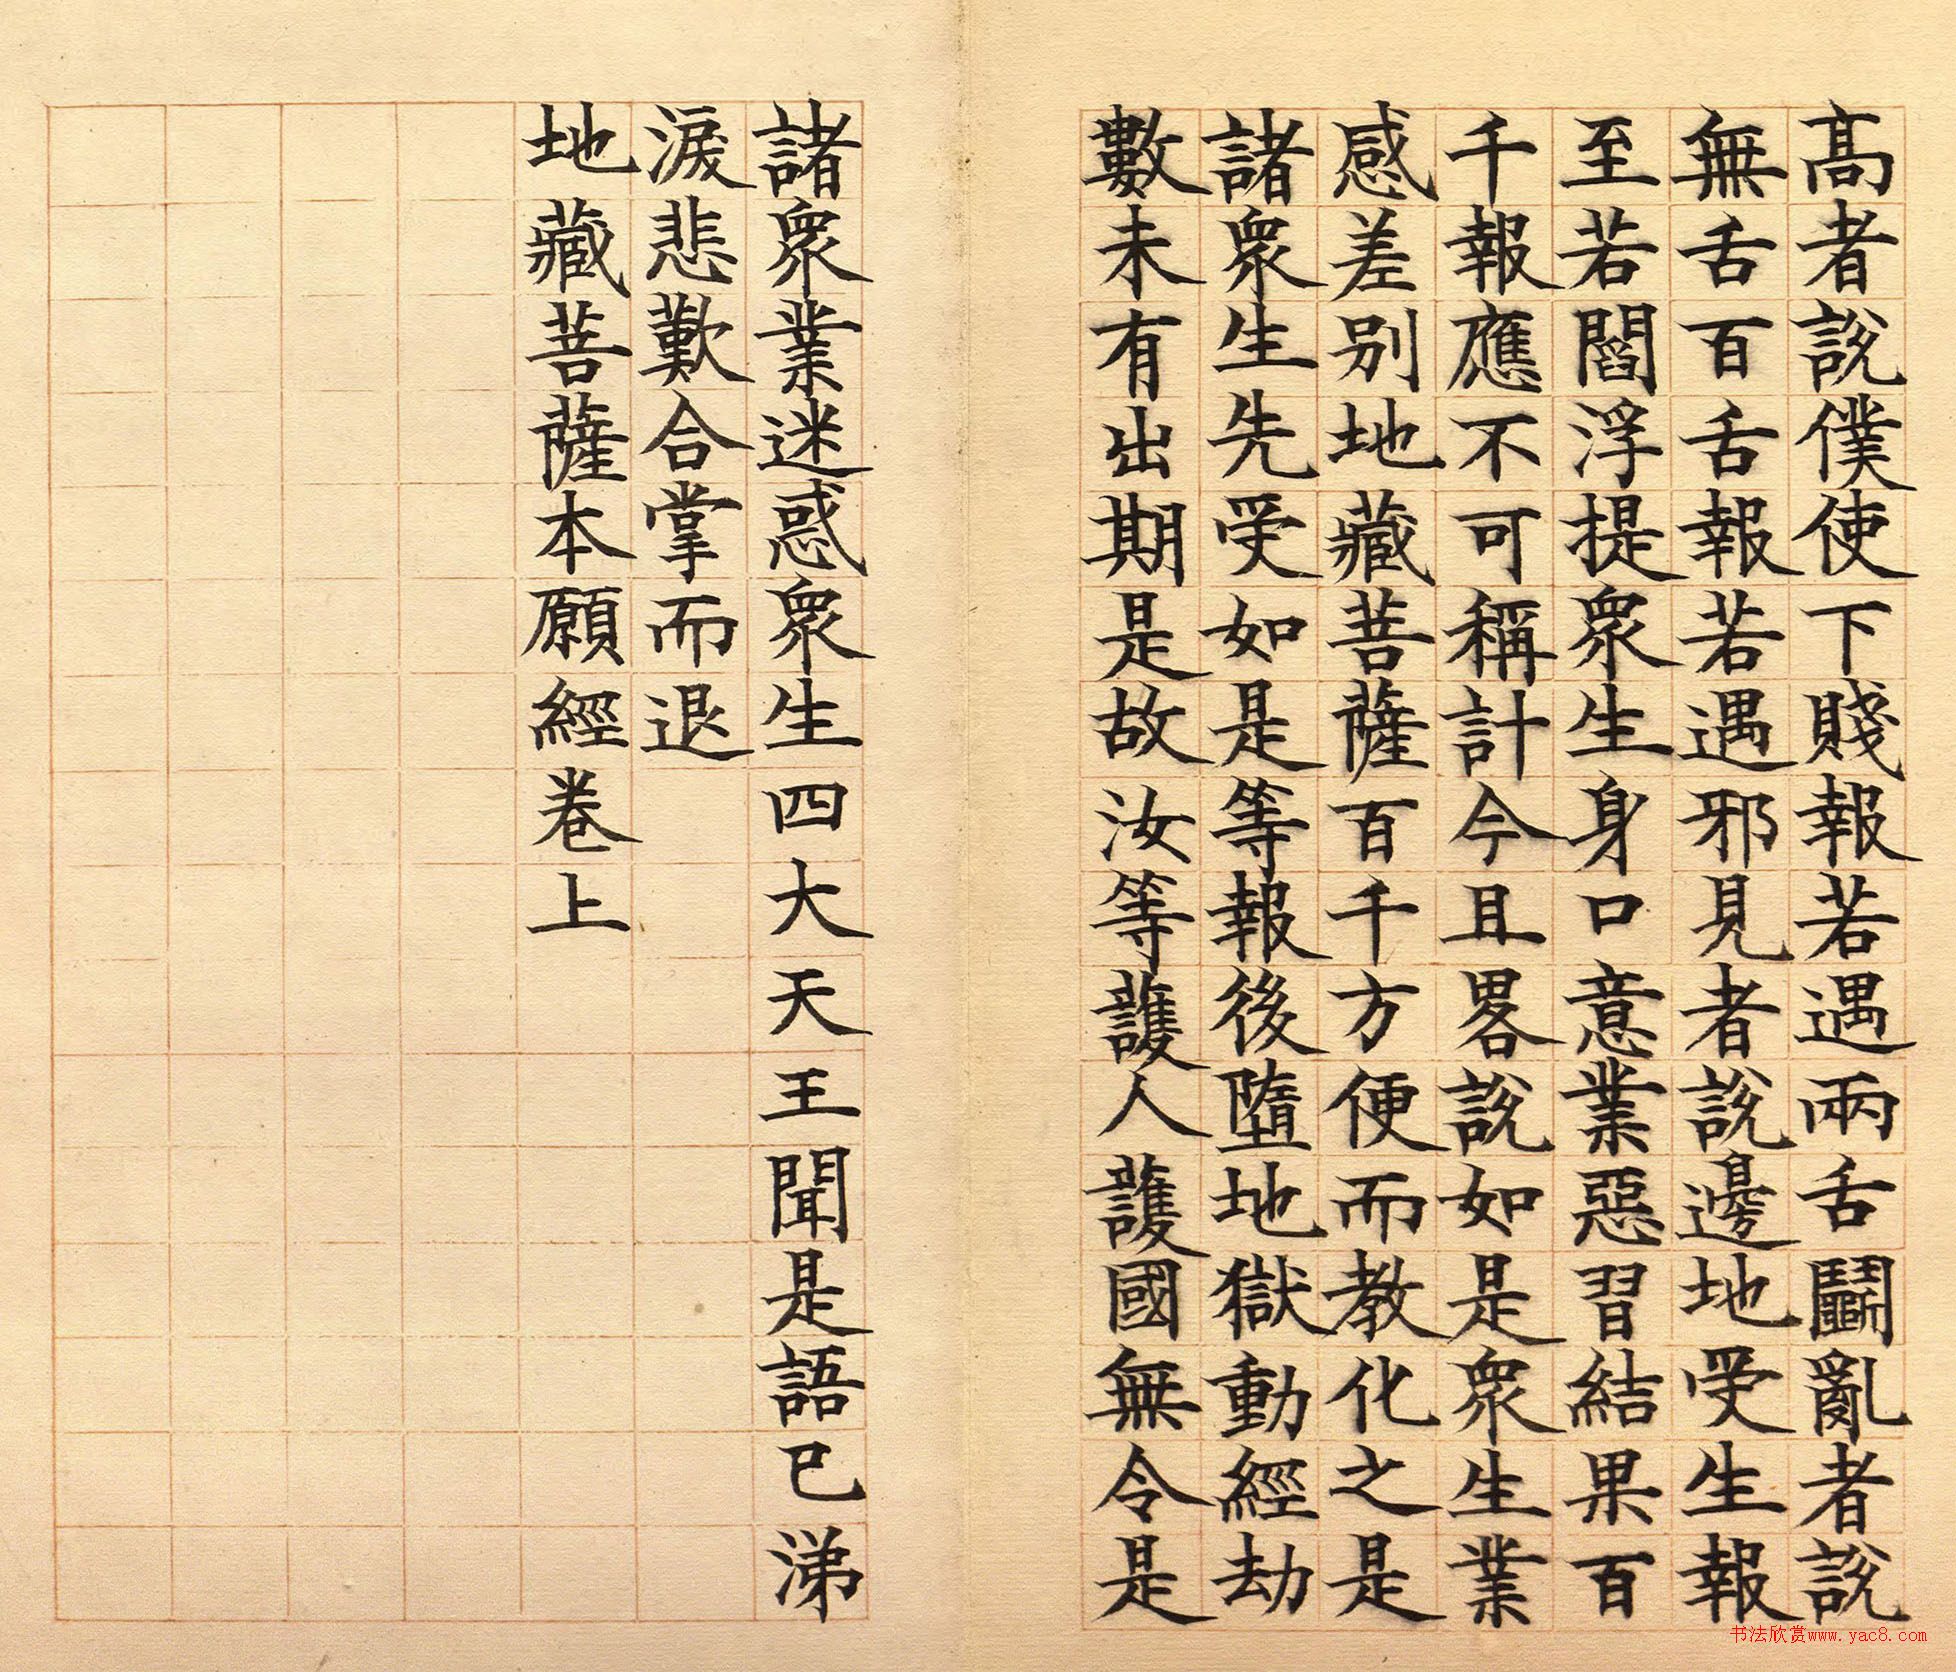 高者說僕使下賤報若遇兩舌鬬亂者說
無舌百舌報若遇邪見者說邊地受生報
至若閻浮提衆生身口意業惡習結果百
千報應不可稱計今且畧說如是衆生業
感差别地藏菩薩百千方便而教化之是
諸衆生先受如是等報後墮地獄動經劫
數未有出期是故汝等護人護國無令是
諸衆業迷惑衆生四大天王聞是語已涕
淚悲歎合掌而退
地藏菩薩本願經卷上
书法欣赏www.yac8.com